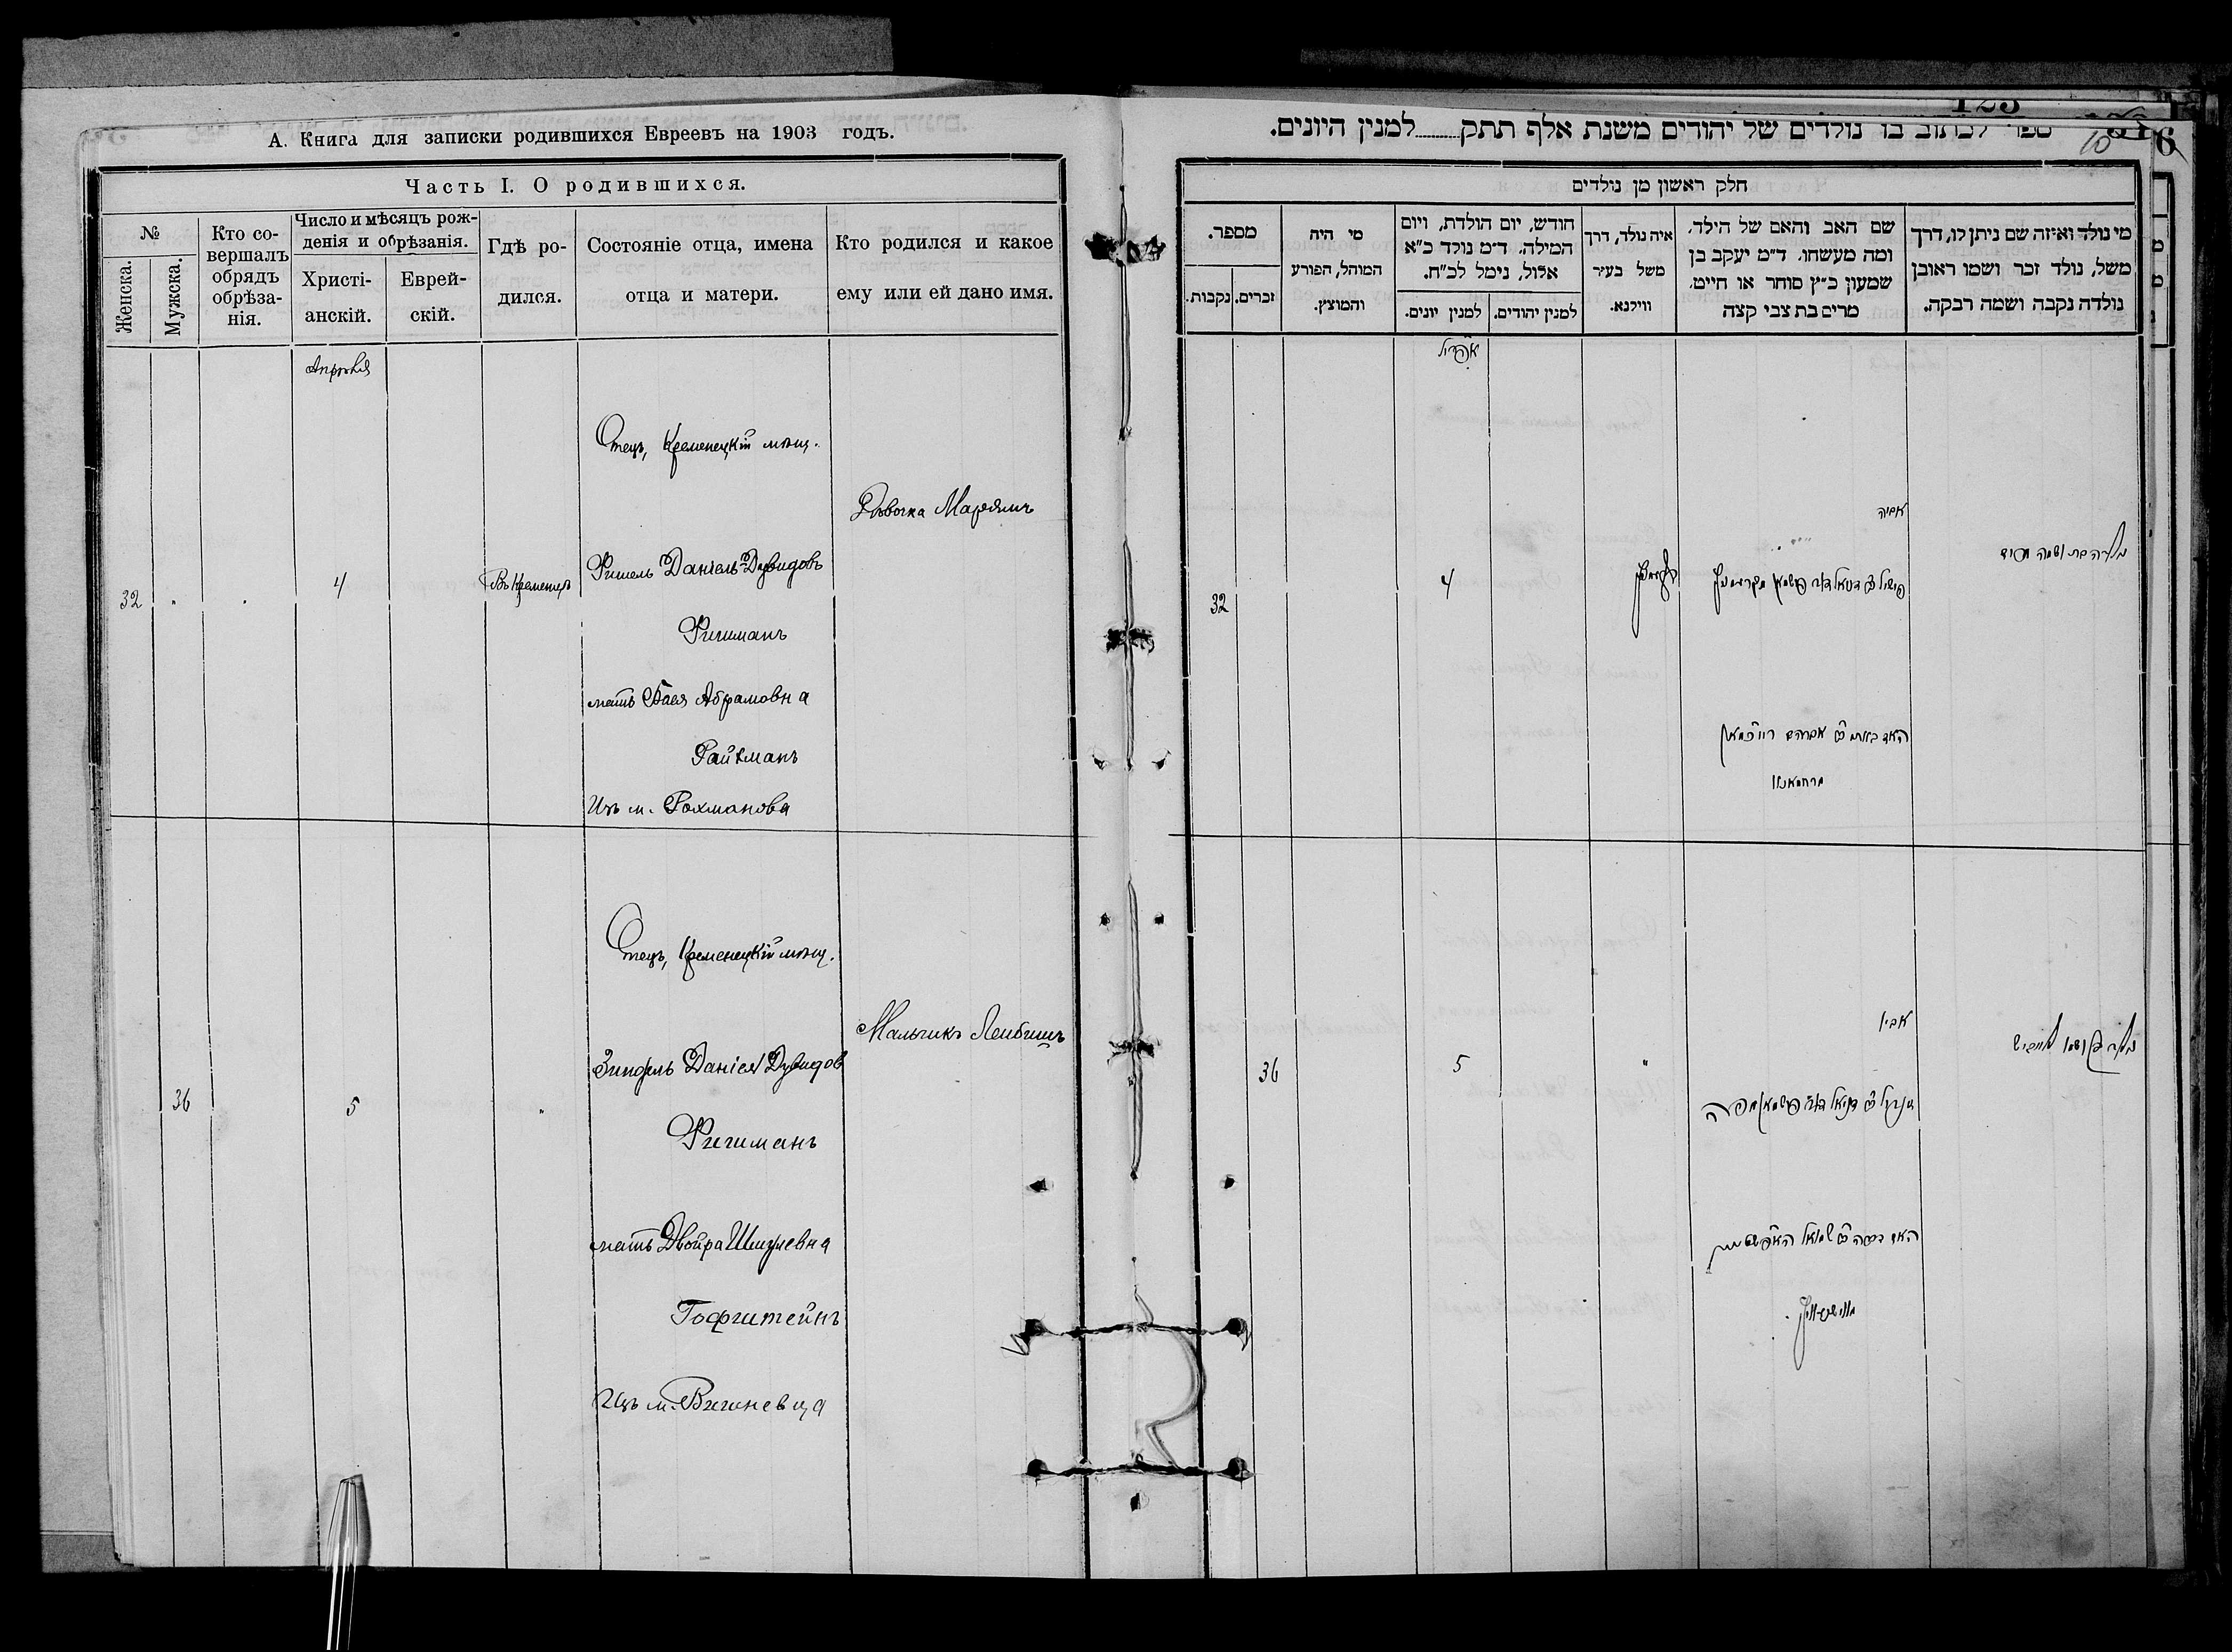 А. Книга для записки родившихся Евреевъ на 1903 годъ.
Часть I. О родившихся.
№
Женска.
Мужска.
Кто со-
вершалъ
обрядъ
обрѣза-
нія.
Число и мѣсяцъ рож-
денія и обрѣзанія.
Христі-
анскій.
Еврей-
скій.
Гдѣ ро-
дился.
Состояніе отца, имена
отца и матери.
Кто родился и какое
ему или ей дано имя.
Апрѣля
32
4
Въ Кременцѣ
Отецъ, Кременецкій мѣщ.
Фишель Даніель-Дувидовъ
Фишманъ
мать Бася Абрамовна
Райхманъ
Изъ м. Рохманова
Дѣвочка Марьямъ
36
5
"
Отецъ, Кременецкій мѣщ.
Даніел Дувидов
Фишманъ
мать Двойра Шмулевна
Гофштейнъ
Изъ м. Вишневца
Мальчикъ Лейбишъ
ספר לכתוב בו נולדים של יהודים משנת אלף תתק למנין היונים.
123
10
6
חלק ראשון מן נולדים
מספר.
נקבות.
זכרים.
מי היה
המוהל, הפורע
והמוצץ.
חודש, יום הולדת, ויום
המילה. ד״מ נולד כ״א
אלול, נימל לכ״ח.
למנין יונים.
למנין יהודים.
איה נולד, דרך
משל בעיר
ווילנא.
שם האב והאם של הילד,
ומה מעשהו. ד״מ יעקב בן
שמעון כ״ץ סוחר או חייט,
מרים בת צבי קצה
מי נולד ואיזה שם ניתן לו, דרך
משל, נולד זכר ושמו ראובן
נולדה נקבה ושמה רבקה.
אפריל
32
4
אביה
36
5
"
אביו